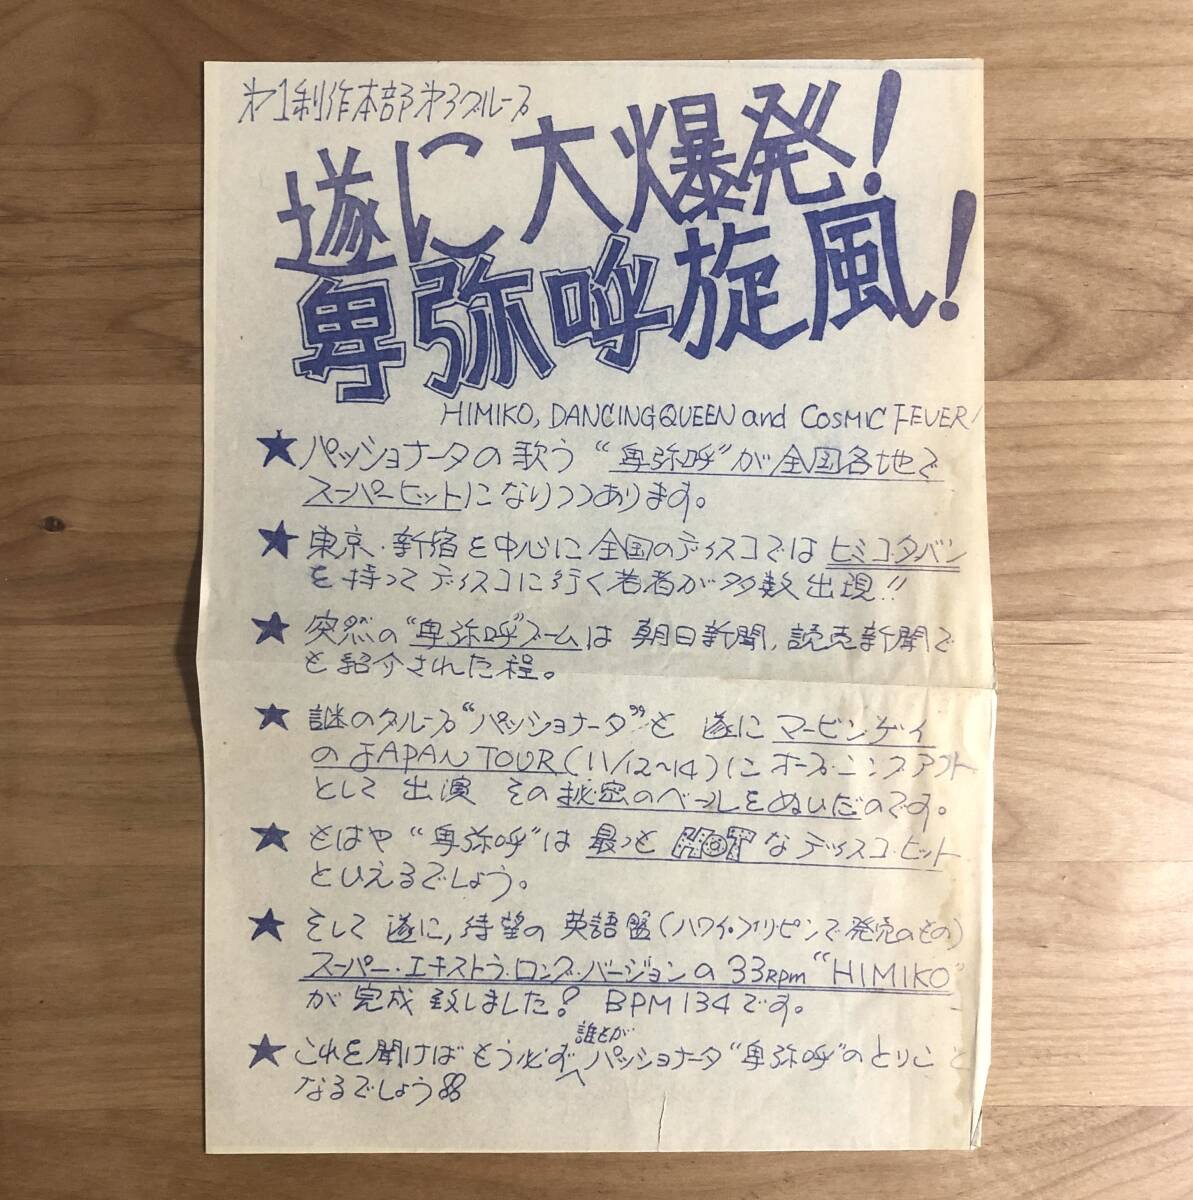 第1制作本部第3グループ
遂に大爆発!
卑弥呼旋風!
HIMIKO, DANCING QUEEN and COSMIC FEVER!
★パッショナータの歌う“卑弥呼”が全国各地で
スーパーヒットになりつつあります。
★東京・新宿を中心に全国のディスコではヒミコ・タバン
を持ってディスコに行く若者が多数出現!!
★突然の“卑弥呼”ブームは朝日新聞,読売新聞で
も紹介された程。
★謎のグループ“パッショナータ”も遂にマービンゲイ
のJAPAN TOUR(11/12〜14)にオープニングアクト
として出演 その秘密のベールをぬいだのです。
★もはや“卑弥呼”は最っともHOTなディスコ・ヒット
といえるでしょう。
★そして遂に,待望の英語盤(ハワイ・フィリピンで発売のもの)
スーパー・エキストラ・ロング・バージョンの33rpm“HIMIKO”
が完成致しました! BPM134です。
誰もが
★これを聞けばもう必ずパッショナータ“卑弥呼”のとりこと
なるでしょう!!